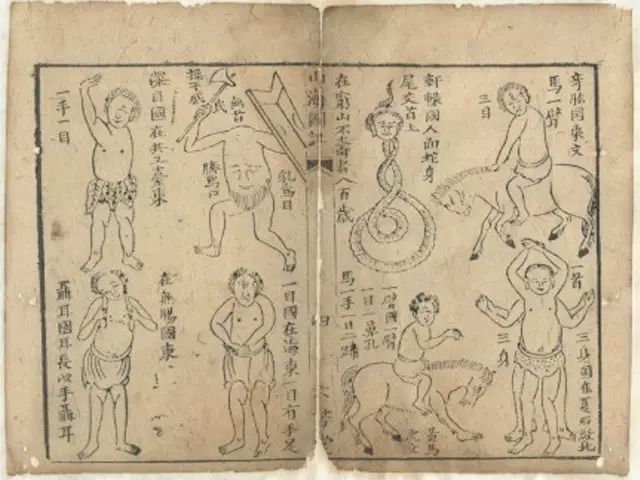 奇肱國東文
馬一臂
三目
軒轅國人面蛇身
尾交首上
在窮山不壽者八百歲
一首
三身國在夏后啟北
三身
一臂國一臂
一目一鼻孔
馬一手一目二蹄
黃馬
虎文
山海圖
四
乳為目
無首
操干戚
臍為口
深目國在共工臺東
一手一目
一目國在海東一目有手足
在無腸國東
聶耳國耳長以手聶耳